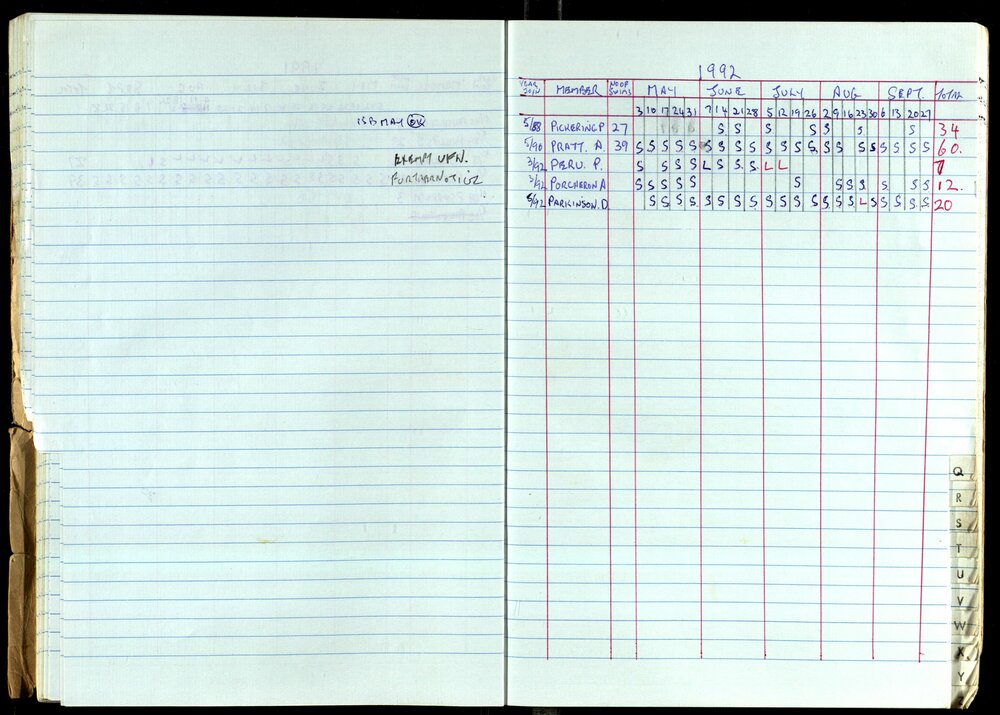 15B MAY OK
EXEMPT UFN.
FURTHER NOTICE
1992
YEAR JOIN MEMBER NO OF SWIMS MAY JUNE JULY AUG SEPT TOTAL
3 10 17 24 31 7 14 21 28 5 12 19 26 2 9 16 23 30 6 13 20 27
5/88 PICKERING P 27 S S S S S S S 34
5/90 PRATT. A. 39 S S S S S S S S S S S S S S S S S S S S S 60.
3/92 PERU. P. S S S S L S S S L L 7
3/92 PORCHERON A S S S S S S S S S S S S 12.
5/92 PARKINSON. D. S S S S S S S S S S S S S S S L S S S S S 20
Q
R
S
T
U
V
W
X
Y
Z